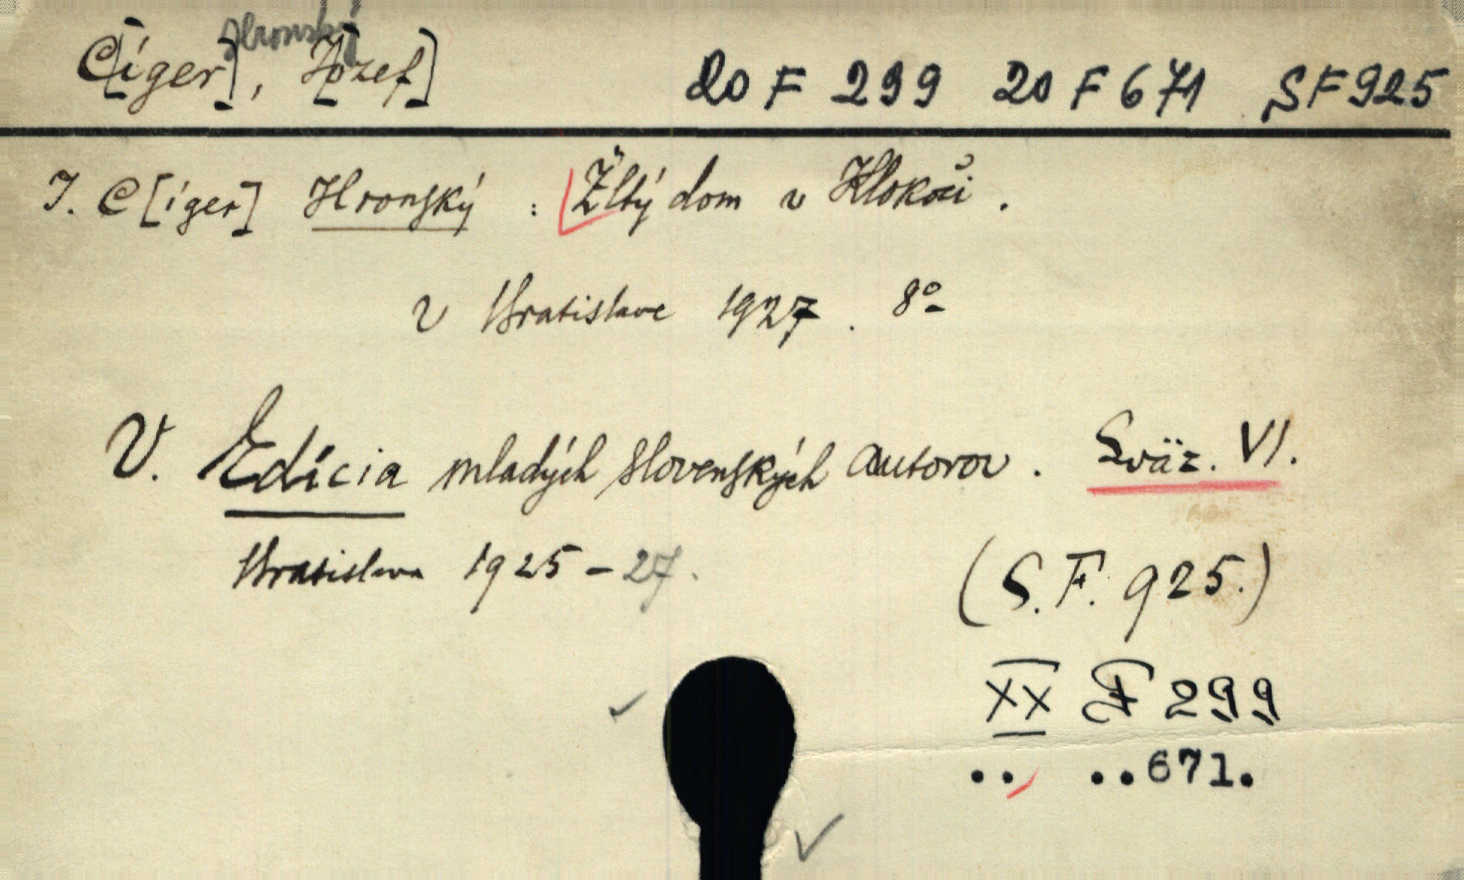 Hronský
C[íger], J[ozef] 20 F 299 20 F 671 SF925
J. C[íger] Hronský : Žltý dom v Klokoči.
V Bratislave 1927. 8º
V. Edícia mladých slovenských autorov. Sväz. VI.
Bratislava 1925-27.
(S.F. 925.)
XX F 299
.. ..671.